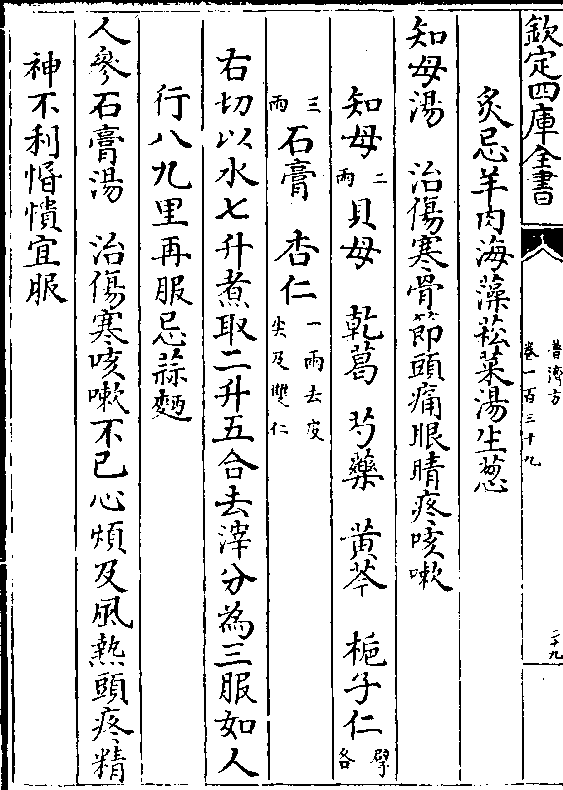 欽定四庫全書
普濟方
卷一百三十九
二十九
炙忌羊肉海藻菘菜湯生葱
知母湯 治傷寒骨節頭痛眼睛疼咳嗽
知母二兩 貝母 乾葛 芍藥 黃芩 梔子仁擘各
三兩 石膏 杏仁一兩去皮尖及雙仁
右切以水七升煮取二升五合去滓分為三服如人
行八九里再服忌蒜麪
人參石膏湯 治傷寒咳嗽不已心煩及風熱頭疼精
神不利惛憒宜服